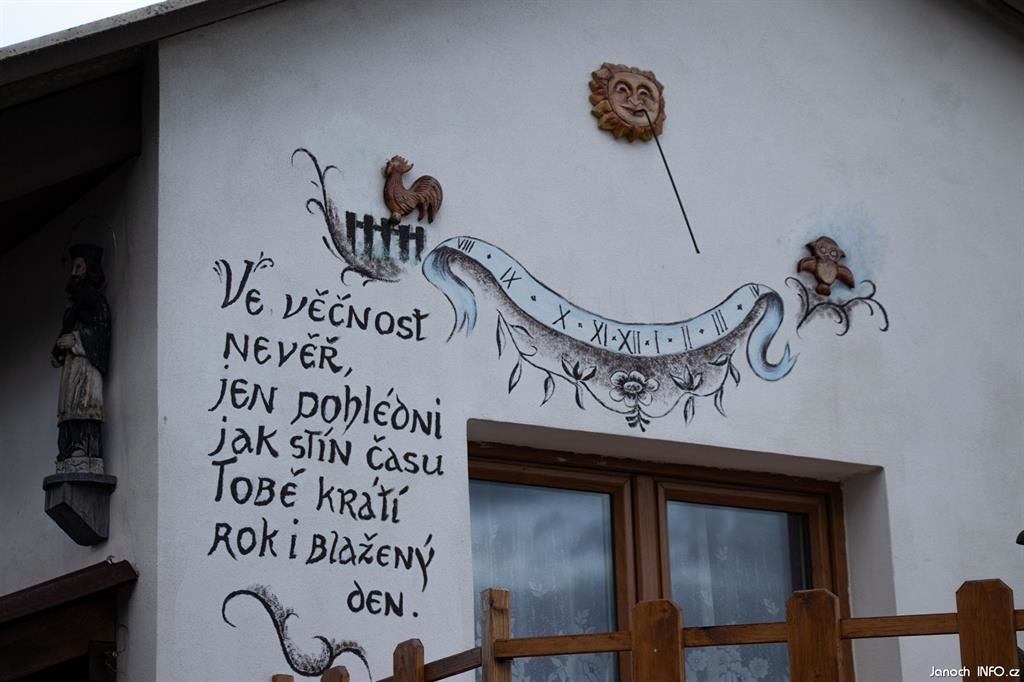 VIII IX X XI XII I II III IV
Ve věčnost
nevěř,
jen pohlédni
jak stín času
Tobě krátí
rok i blažený
den.
Janoch INFO.cz